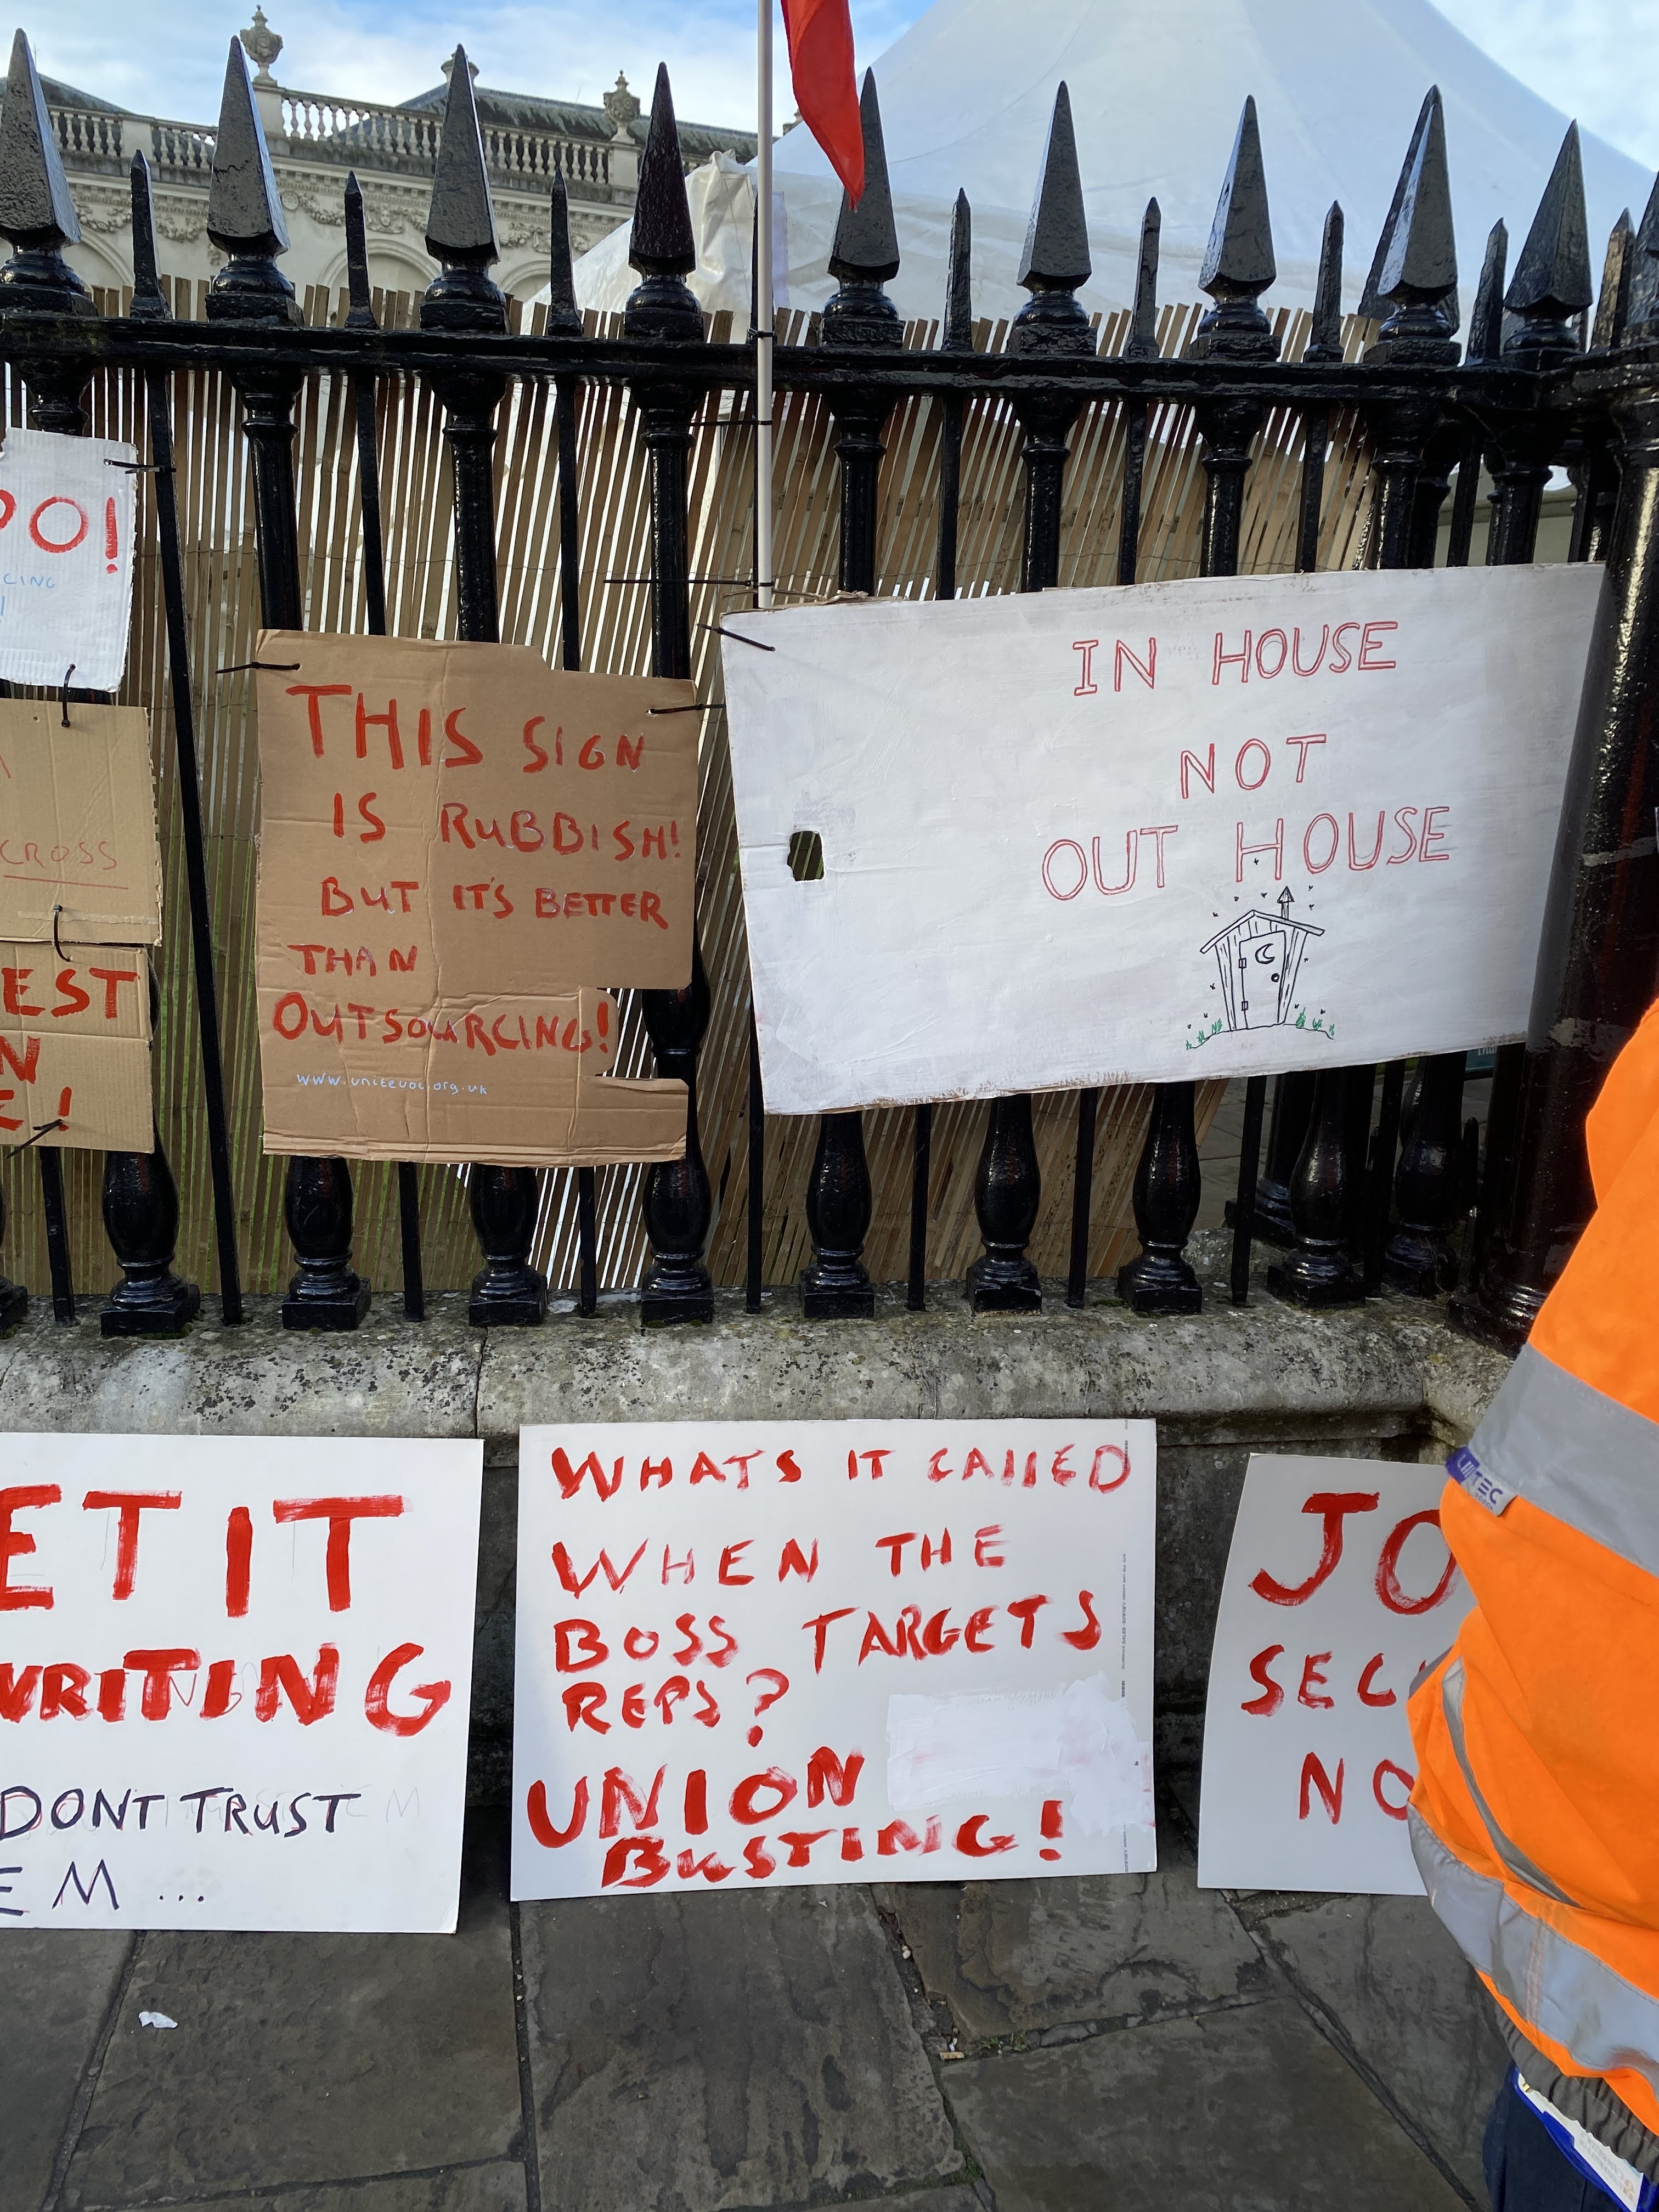 O!
CING
CROSS
EST
N
E!
THIS SIGN
IS RUBBISH!
BUT IT'S BETTER
THAN
OUTSOURCING!
IN HOUSE
NOT
OUT HOUSE
ET IT
WRITING
DONT TRUST
EM...
WHATS IT CAllED
WHEN THE
BOSS TARGETS
REPS?
UNION
BUSTING!
JO
SEC
NO
TEC